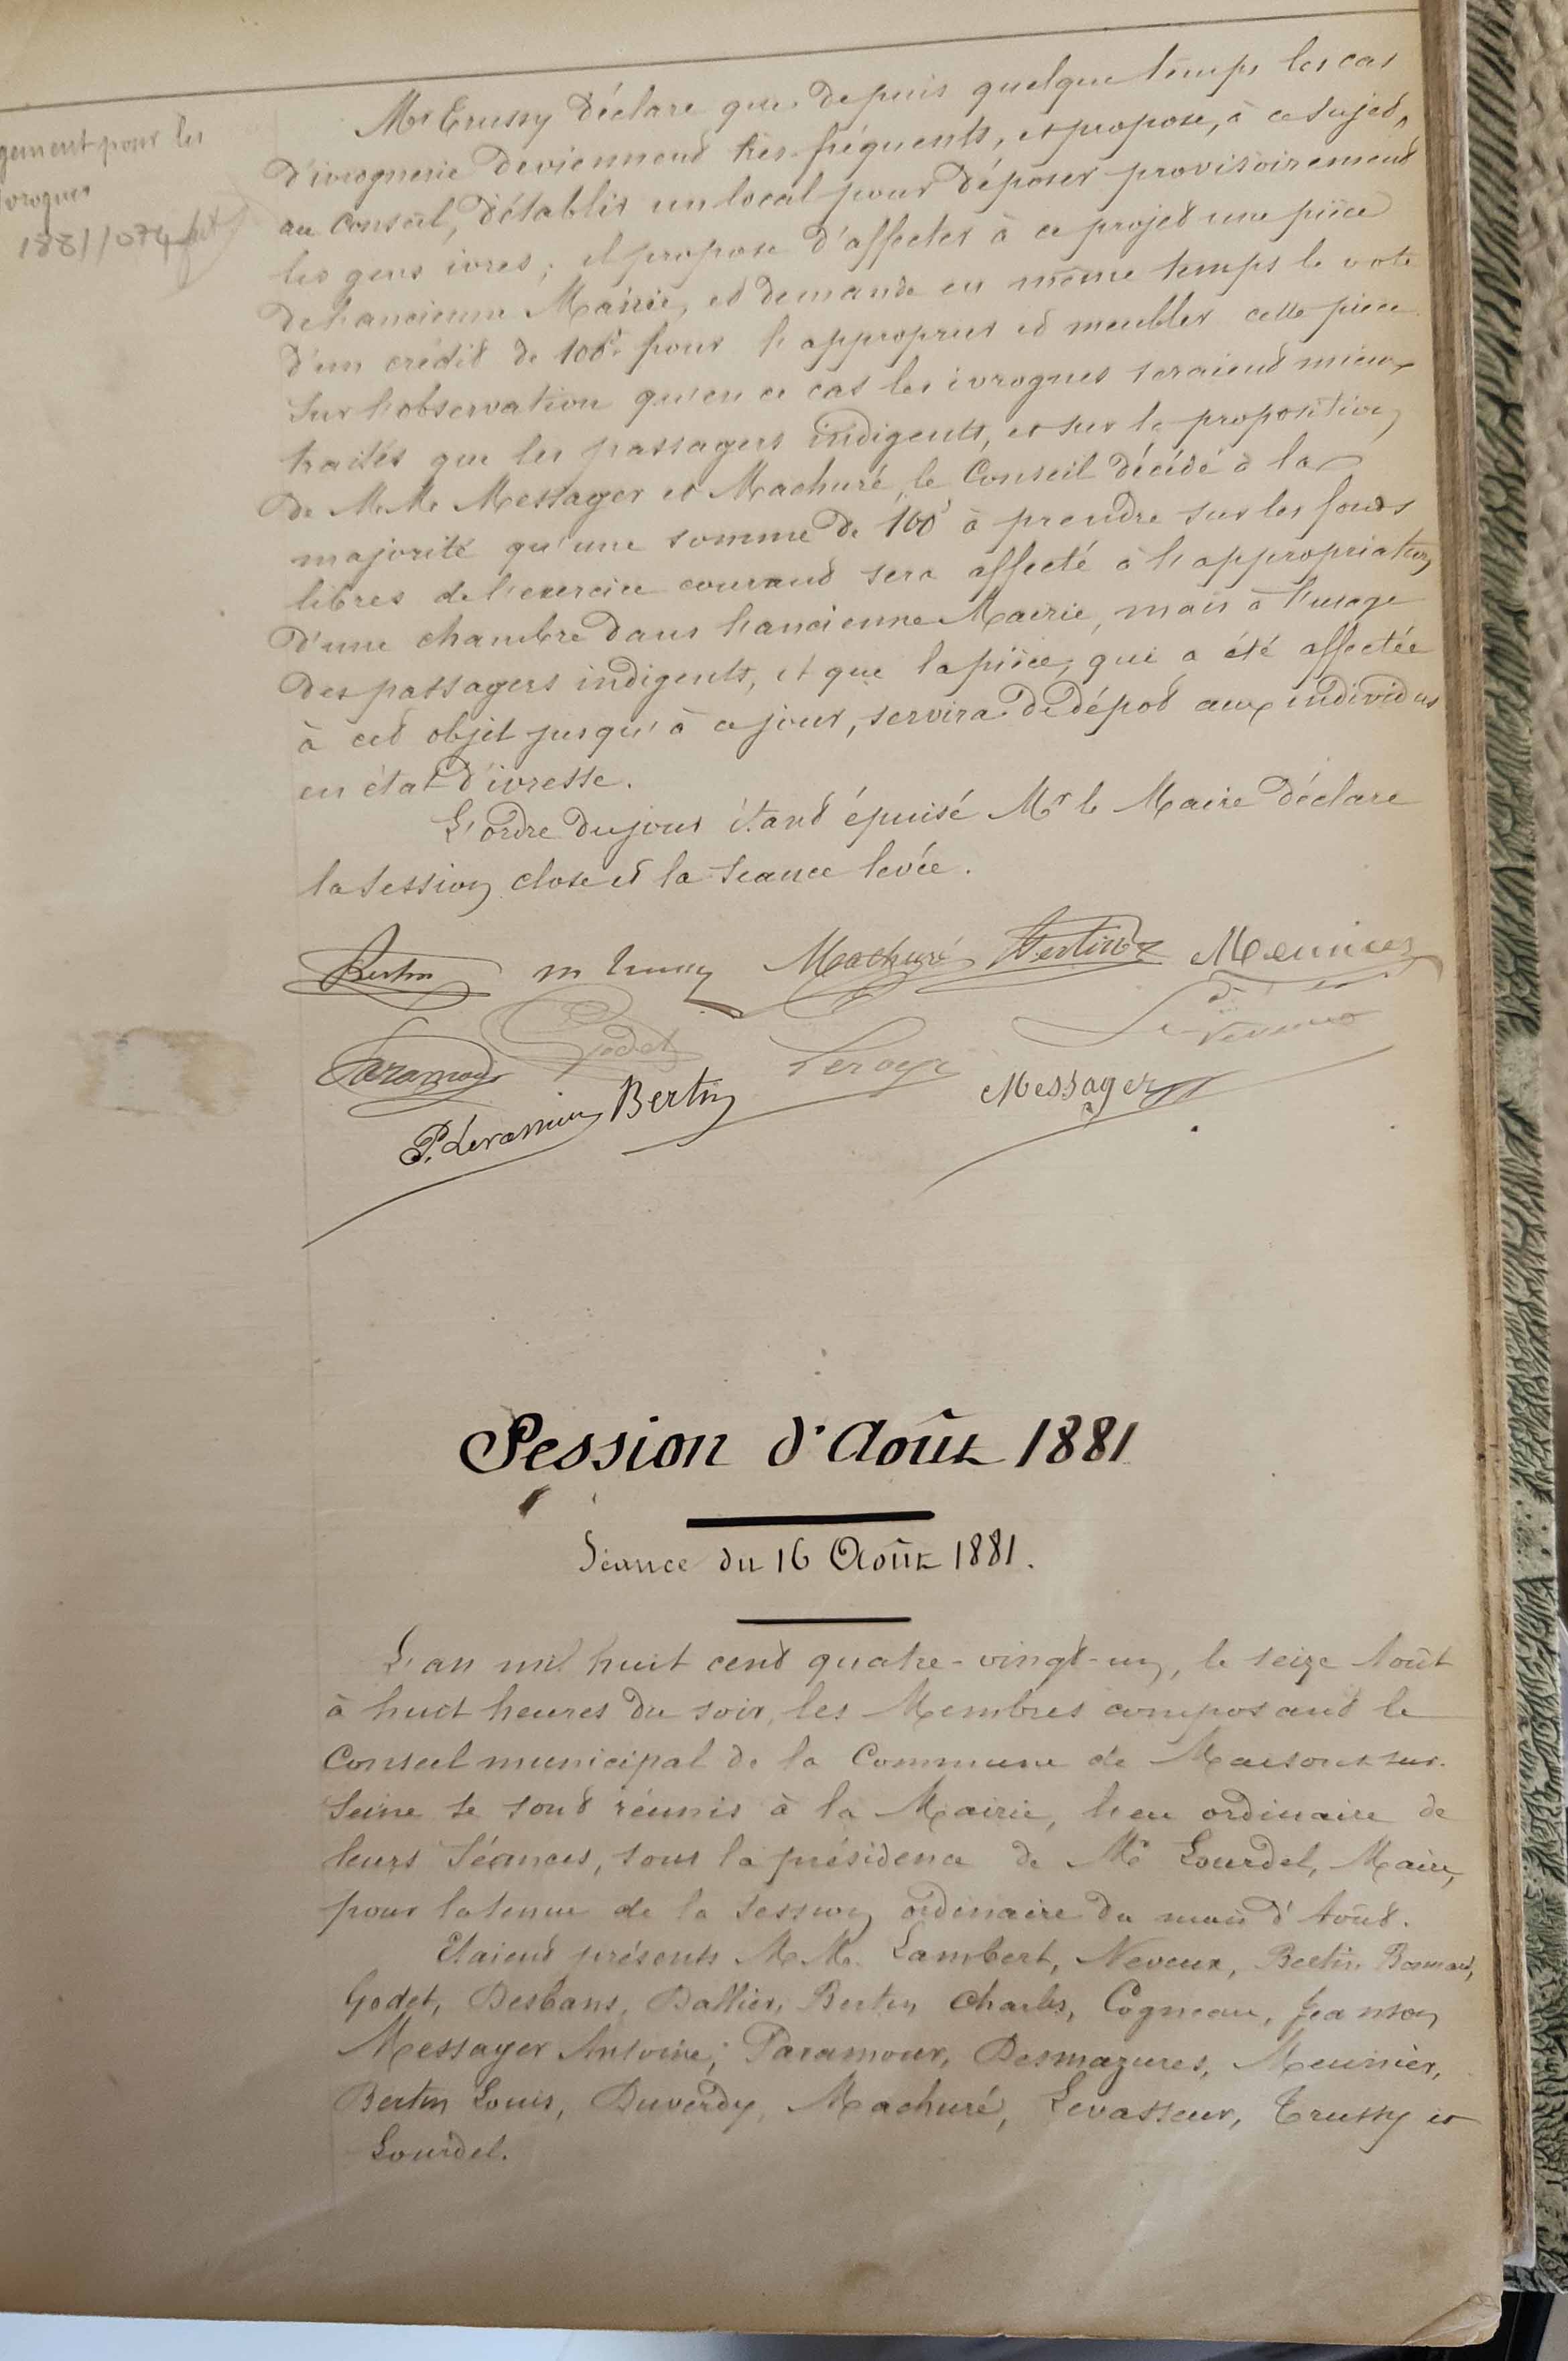 gement pour les
ivrognes
1881/074
Mr Trussy déclare que depuis quelque temps les cas
d'ivrognerie deviennent très fréquents, et propose, à ce sujet,
au Conseil, d'établir un local pour déposer provisoirement
les gens ivres; il propose d'affecter à ce projet une pièce
de l'ancienne Mairie, et demande en même temps le vote
d'un crédit de 100f pour l'approprier et meubler cette pièce.
Sur l'observation qu'en ce cas les ivrognes seraient mieux
traités que les passagers indigents, et sur la proposition
de M.M. Messager et Machuré, le Conseil décide à la
majorité qu'une somme de 100f à prendre sur les fonds
libres de l'exercice courant sera affecté à l'appropriation
d'une chambre dans l'ancienne Mairie, mais à l'usage
des passagers indigents, et que la pièce, qui a été affectée
à cet objet jusqu'à ce jour, servira de dépôt aux individus
en état d'ivresse.
L'ordre du jour étant épuisé Mr le Maire déclare
la session close et la séance levée.
Bertin m Trussy Machuré Meunier
Paramour Godet
Messager
P. Levasseur Bertin
Session d'Août 1881
Séance du 16 Août 1881.
L'an mil huit cent quatre-vingt-un, le seize Août
à huit heures du soir, les Membres composant le
Conseil municipal de la Commune de Maisons-sur-
Seine se sont réunis à la Mairie, lieu ordinaire de
leurs séances, sous la présidence de Mr Lourdel, Maire,
pour la tenue de la session ordinaire du mois d'Août.
Etaient présents M.M. Lambert, Neveux, Bertin
Godet, Desbans, Dallier, Bertin Charles, Cogneau, Jeanson
Messager Antoine, Paramour, Desmazures, Meunier,
Bertin Louis, Duverdy, Machuré, Levasseur, Trussy et
Lourdel.